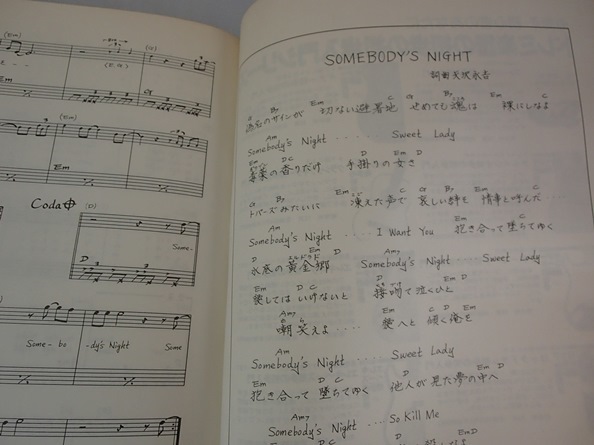 (Em)
(G)
(E.G)
G
(Em)
Em
Coda
(D)
Some-
Some- bo -dy's Night Some
SOMEBODY'S NIGHT
詞曲 矢沢永吉
G B7 Em C G B7 Em C
偽名のサインが 切ない避暑地 せめても魂は 裸にしなよ
Am
Somebody's Night ‥‥‥ Sweet Lady
Em D C D Em D
毒薬の香りだけ 手掛りの女さ
G B7 Em C G B7 Em C
トパーズみたいに 凍えた声で 哀しい絆を 情事と呼んだ‥‥
Am Em C
Somebody's Night ‥‥ I Want You 抱き合って堕ちてゆく
D Em D Am7
水底の黄金郷 エルドラド Somebody's Night ‥‥ Sweet Lady
Em D C D Em D
愛しては いけないと 接吻で泣くひと
Am7 Em C D Em
嘲笑えよ ‥‥ 愛へと 傾く俺を
Am
Somebody's Night ‥‥‥ Sweet Lady
Em D C D Em D
抱き合って 堕ちてゆく 他人が見た夢の中へ
Am7
Somebody's Night ‥‥ So Kill Me
Em D C D Em D